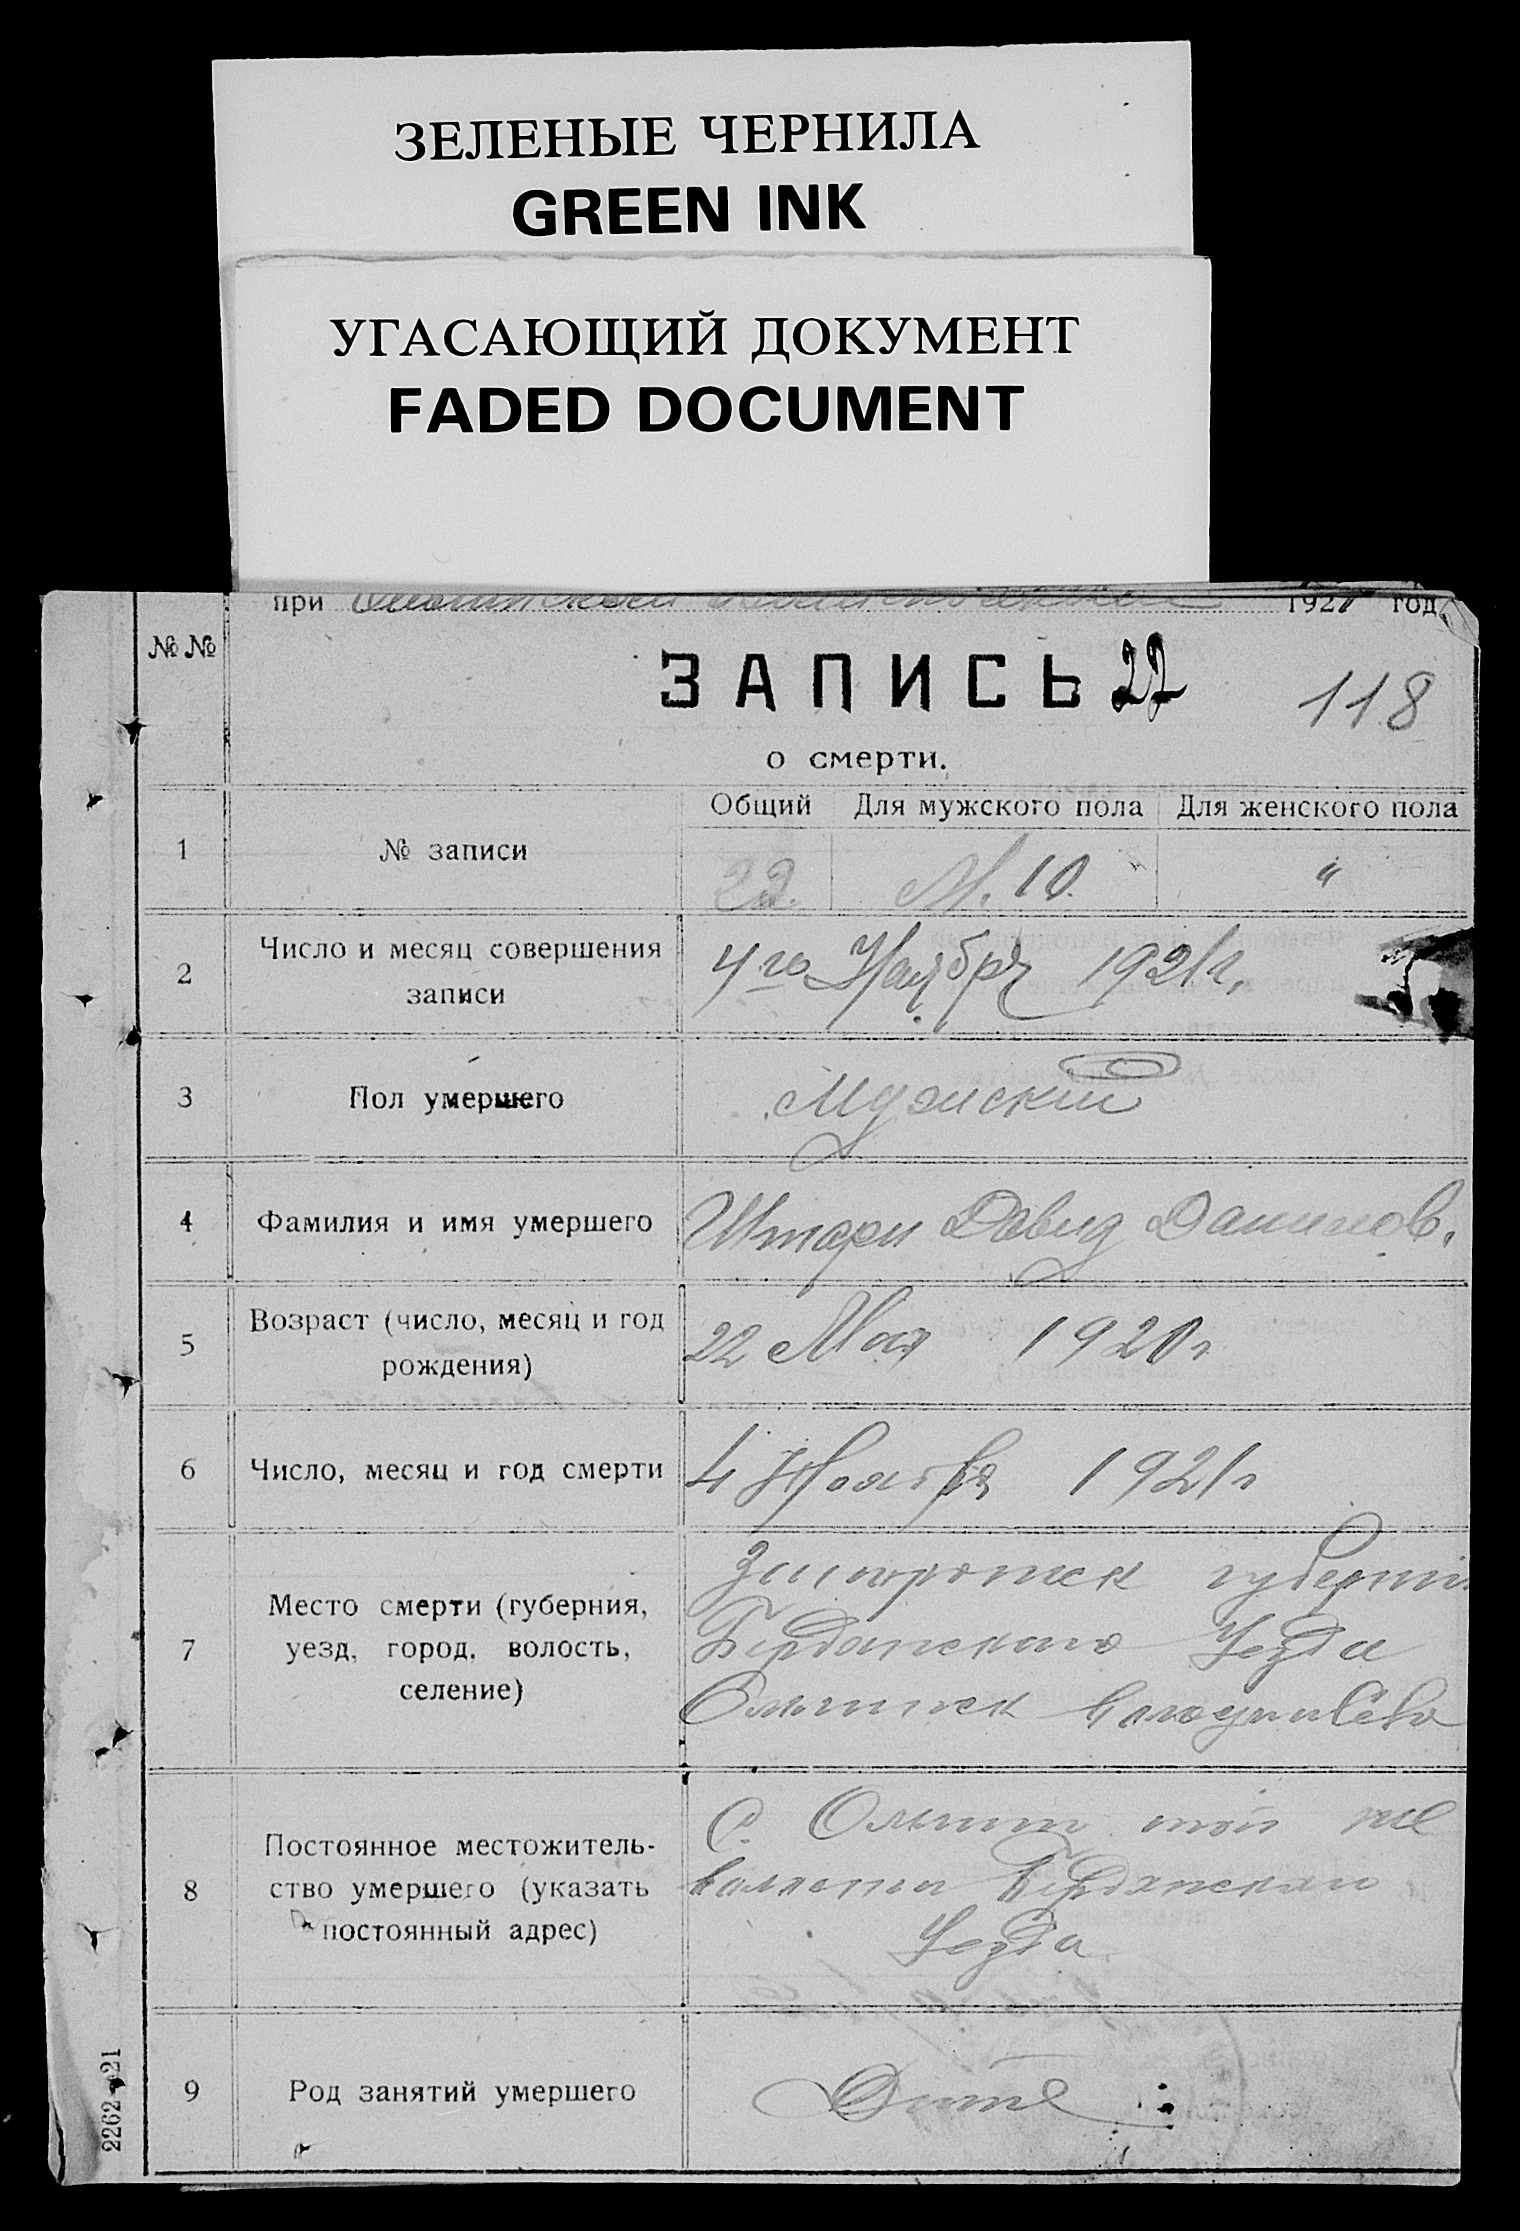 ЗЕЛЕНЫЕ ЧЕРНИЛА
GREEN INK
УГАСАЮЩИЙ ДОКУМЕНТ
FADED DOCUMENT
при 1921 год
№№
ЗАПИСЬ 22
118
о смерти.
Общий Для мужского пола Для женского пола
1 № записи 22. М. 10. "
2 Число и месяц совершения
записи
4го Ноября 1921 г.
3 Пол умершего Мужский
4 Фамилия и имя умершего Давид
5 Возраст (число, месяц и год
рождения)
22 Мая 1920 г
6 Число, месяц и год смерти 4 Ноября 1921 г
7 Место смерти (губерния,
уезд, город, волость,
селение)
губерния
Бердянского Уезда
8 Постоянное местожитель-
ство умершего (указать
постоянный адрес)
С. той же
волости Бердянского
Уезда
9 Род занятий умершего Дитя
2262—21